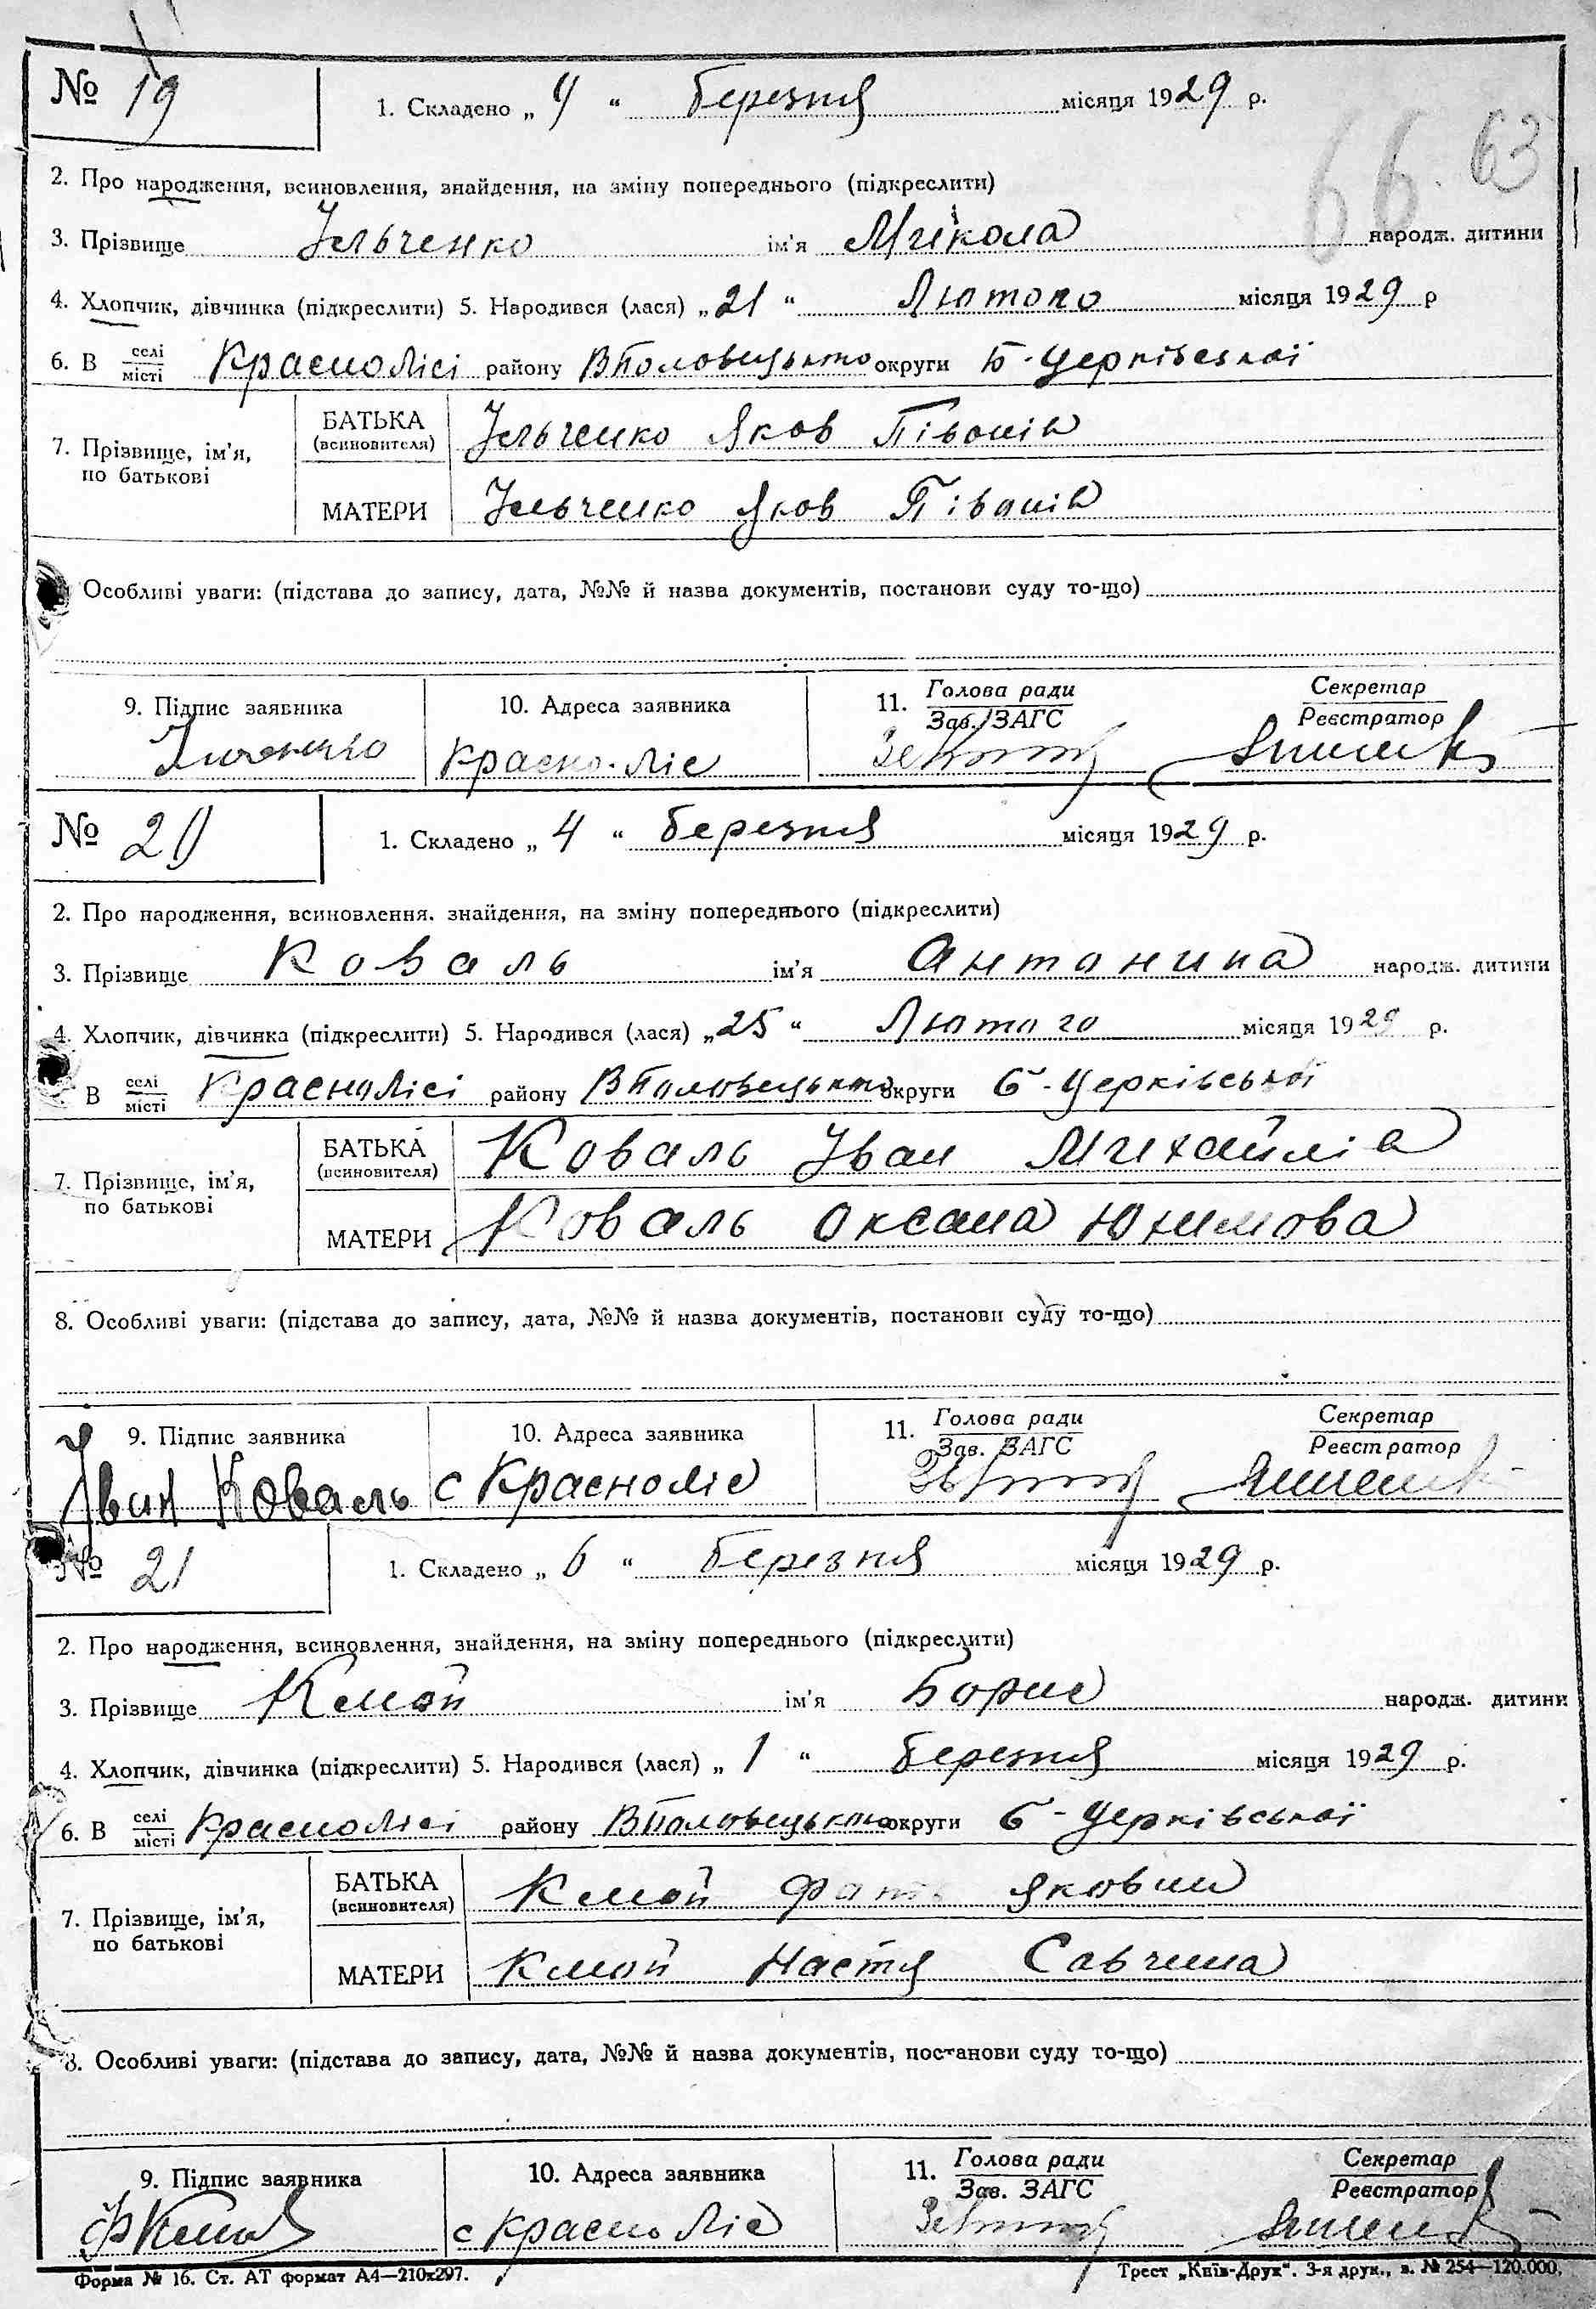 № 19
1. Складено „ 4 “ березня місяця 1929 р.
66. 63
2. Про народження, всиновлення, знайдення, на зміну попереднього (підкреслити)
3. Прізвище Ільченко ім'я Микола народж. дитини
4. Хлопчик, дівчинка (підкреслити) 5. Народився (лася) „ 21 “ Лютого місяця 1929 р
6. В селі/місті Краснолісі району ВПоловецького округи Б-Церківської
7. Прізвище, ім'я, по батькові
БАТЬКА (всиновителя) Ільченко Яков Півонів
МАТЕРИ Ільченко Яков Півонів
Особливі уваги: (підстава до запису, дата, №№ й назва документів, постанови суду то-що)
9. Підпис заявника 10. Адреса заявника 11. Голова ради/Зав. ЗАГС Секретар/Реєстратор
Красно-ліс
№ 20
1. Складено „ 4 “ березня місяця 1929 р.
2. Про народження, всиновлення. знайдення, на зміну попереднього (підкреслити)
3. Прізвище Коваль ім'я Антонина народж. дитини
4. Хлопчик, дівчинка (підкреслити) 5. Народився (лася) „ 25 “ Лютого місяця 1929 р.
В селі/місті Краснолісі району ВПоловецького округи Б-Церківської
7. Прізвище, ім'я, по батькові
БАТЬКА (всиновителя) Коваль Іван Михайлів
МАТЕРИ Коваль Оксана Юхимова
8. Особливі уваги: (підстава до запису, дата, №№ й назва документів, постанови суду то-що)
9. Підпис заявника 10. Адреса заявника 11. Голова ради/Зав. ЗАГС Секретар/Реєстратор
Іван Коваль с Красноліс
№ 21
1. Складено „ 6 “ березня місяця 1929 р.
2. Про народження, всиновлення, знайдення, на зміну попереднього (підкреслити)
3. Прізвище Кмой ім'я Борис народж. дитини
4. Хлопчик, дівчинка (підкреслити) 5. Народився (лася) „ 1 “ березня місяця 1929 р.
6. В селі/місті Краснолісі району ВПоловецького округи Б-Церківської
7. Прізвище, ім'я, по батькові
БАТЬКА (всиновителя) Кмой
МАТЕРИ Кмой Настя Савчина
8. Особливі уваги: (підстава до запису, дата, №№ й назва документів, постанови суду то-що)
9. Підпис заявника 10. Адреса заявника 11. Голова ради/Зав. ЗАГС Секретар/Реєстратор
с Красноліс
Форма № 16. Ст. АТ формат А4—210х297. Трест „Київ-Друк“. 3-я друк., з. № 254—120.000.